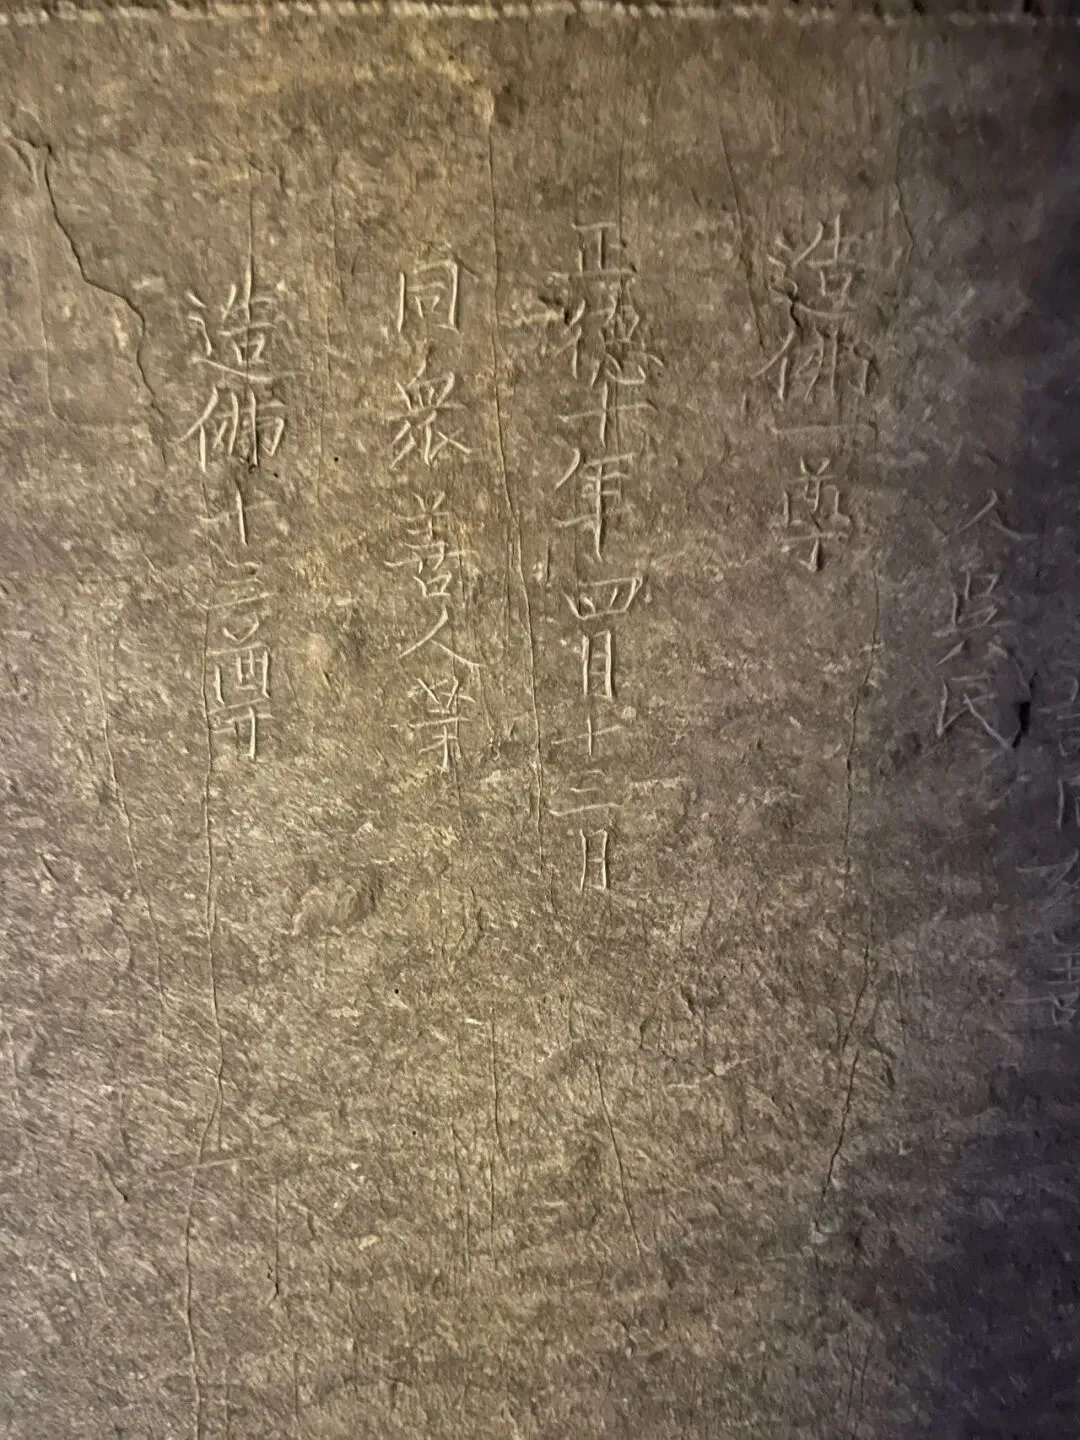 人吳氏
造佛一尊
正德十年四月十三日
同衆善人等
造佛十尊